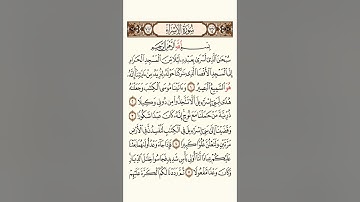 سُورَةُ الإِسْرَاءِ
بِسْمِ اللَّهِ الرَّحْمَٰنِ الرَّحِيمِ
سُبْحَٰنَ ٱلَّذِىٓ أَسْرَىٰ بِعَبْدِهِۦ لَيْلًا مِّنَ ٱلْمَسْجِدِ ٱلْحَرَامِ
إِلَى ٱلْمَسْجِدِ ٱلْأَقْصَا ٱلَّذِى بَٰرَكْنَا حَوْلَهُۥ لِنُرِيَهُۥ مِنْ ءَايَٰتِنَآ إِنَّهُۥ
هُوَ ٱلسَّمِيعُ ٱلْبَصِيرُ ١ وَءَاتَيْنَا مُوسَى ٱلْكِتَٰبَ وَجَعَلْنَٰهُ
هُدًى لِّبَنِىٓ إِسْرَٰٓءِيلَ أَلَّا تَتَّخِذُوا۟ مِن دُونِى وَكِيلًا ٢
ذُرِّيَّةَ مَنْ حَمَلْنَا مَعَ نُوحٍ إِنَّهُۥ كَانَ عَبْدًا شَكُورًا ٣
وَقَضَيْنَآ إِلَىٰ بَنِىٓ إِسْرَٰٓءِيلَ فِى ٱلْكِتَٰبِ لَتُفْسِدُنَّ فِى ٱلْأَرْضِ
مَرَّتَيْنِ وَلَتَعْلُنَّ عُلُوًّا كَبِيرًا ٤ فَإِذَا جَآءَ وَعْدُ أُولَىٰهُمَا بَعَثْنَا
عَلَيْكُمْ عِبَادًا لَّنَآ أُو۟لِى بَأْسٍ شَدِيدٍ فَجَاسُوا۟ خِلَٰلَ ٱلدِّيَارِ
وَكَانَ وَعْدًا مَّفْعُولًا ٥ ثُمَّ رَدَدْنَا لَكُمُ ٱلْكَرَّةَ عَلَيْهِمْ